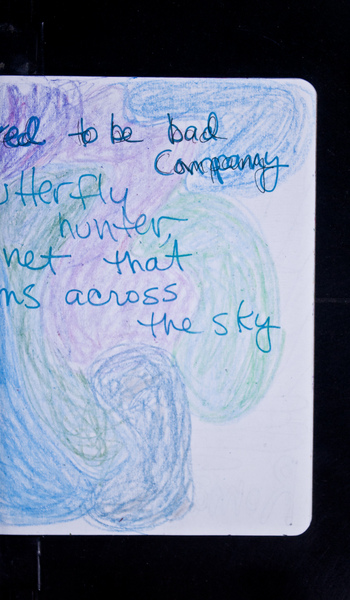 red to be bad
Company
utterfly
hunter,
net that
ns across
the sky